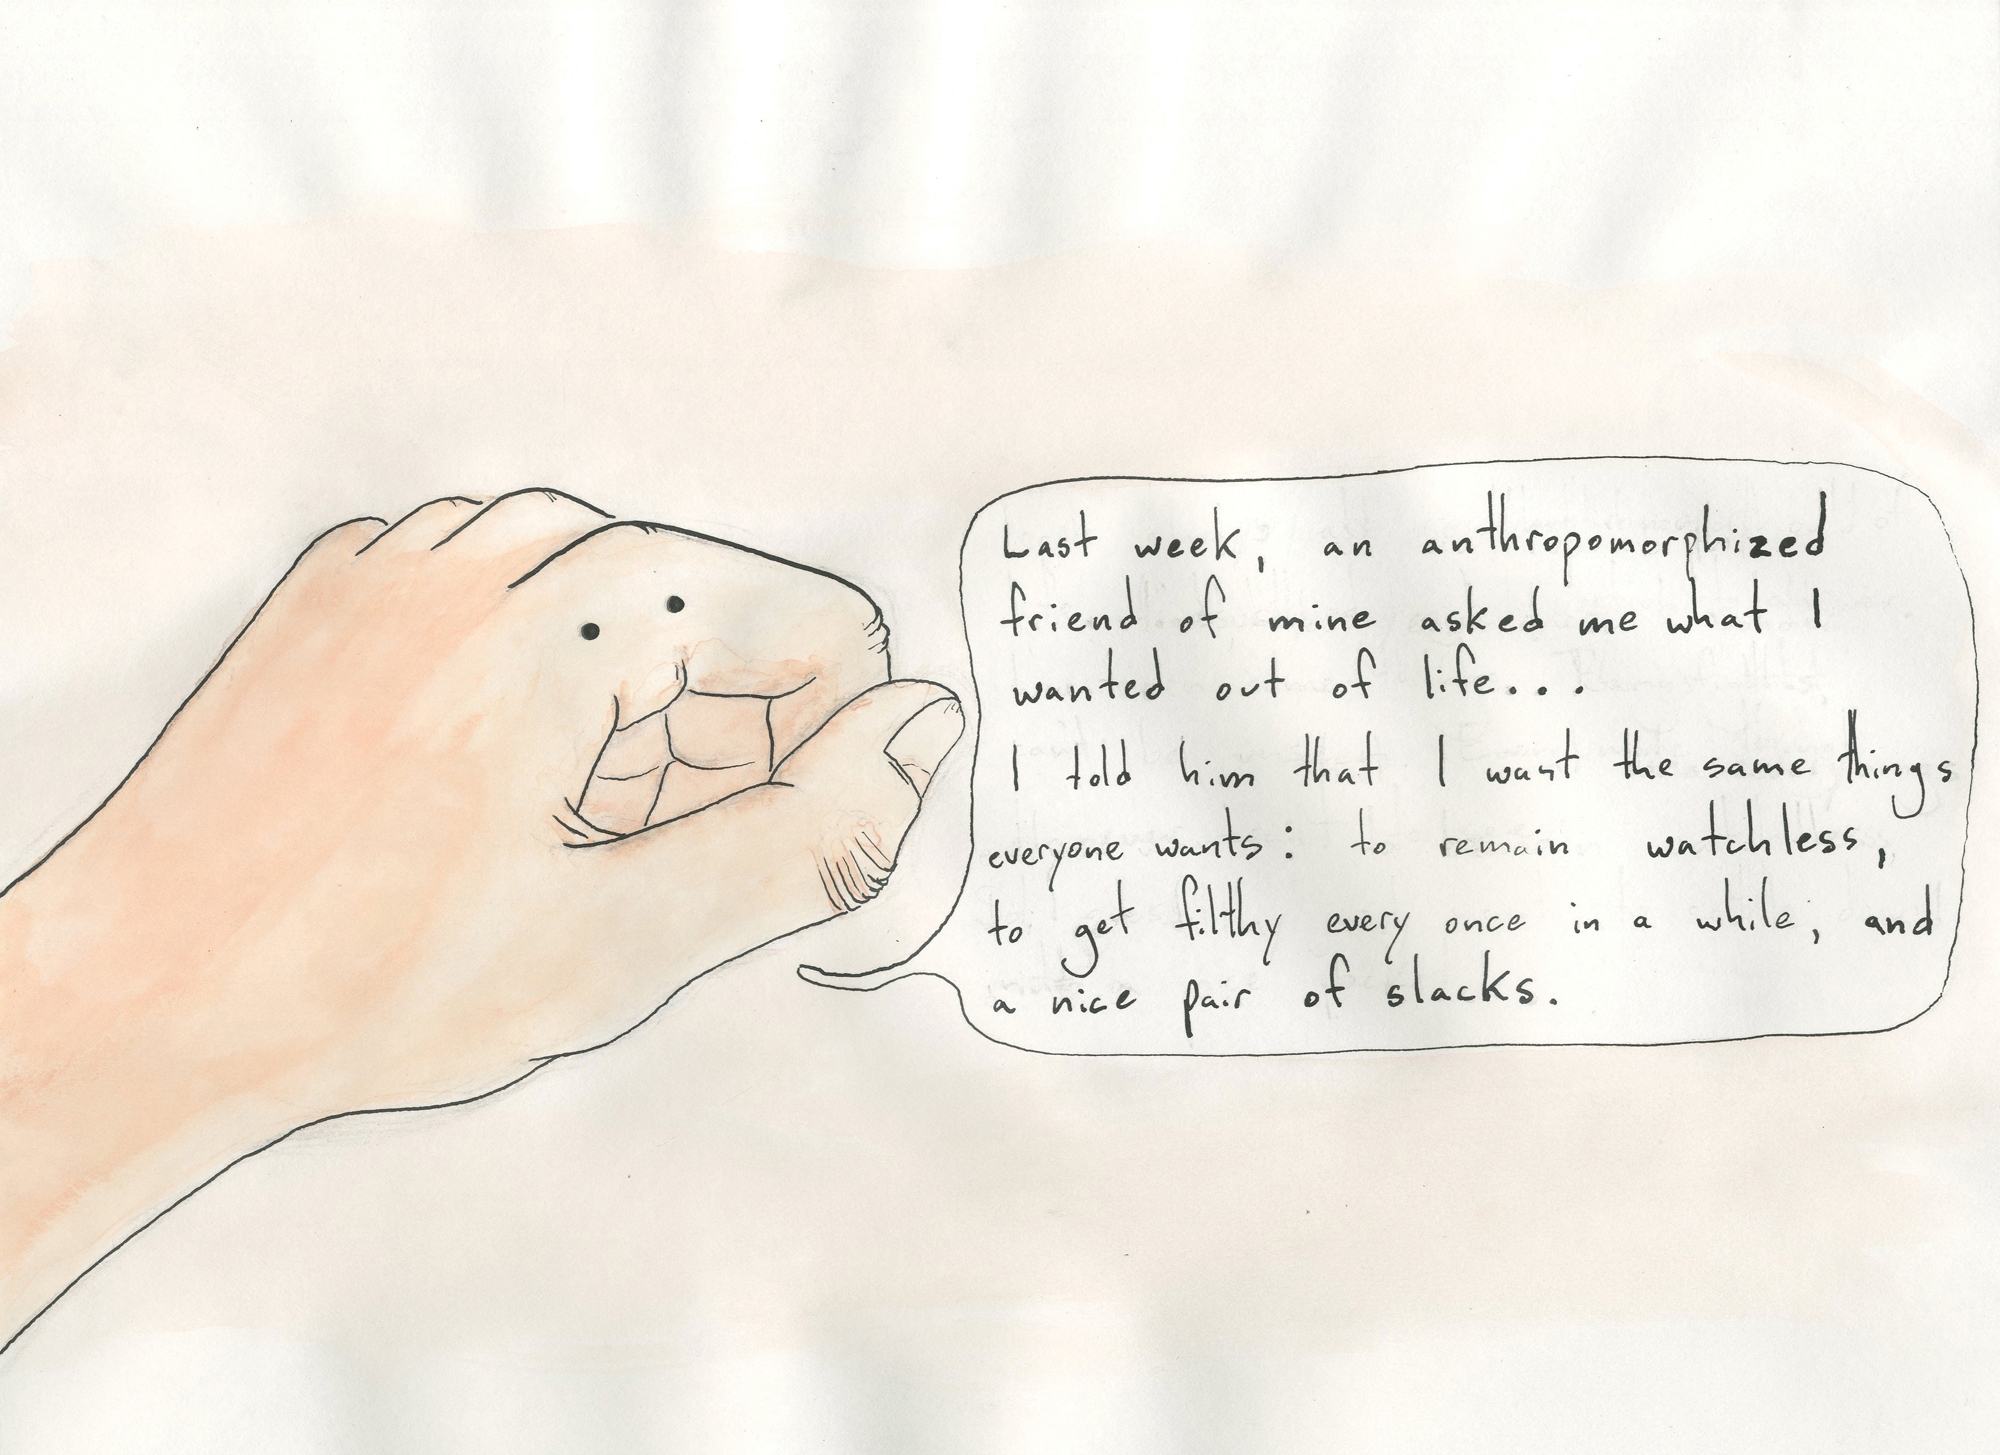 Last week, an anthropomorphized
friend of mine asked me what I
wanted out of life...
I told him that I want the same things
everyone wants: to remain watchless,
to get filthy every once in a while, and
a nice pair of slacks.